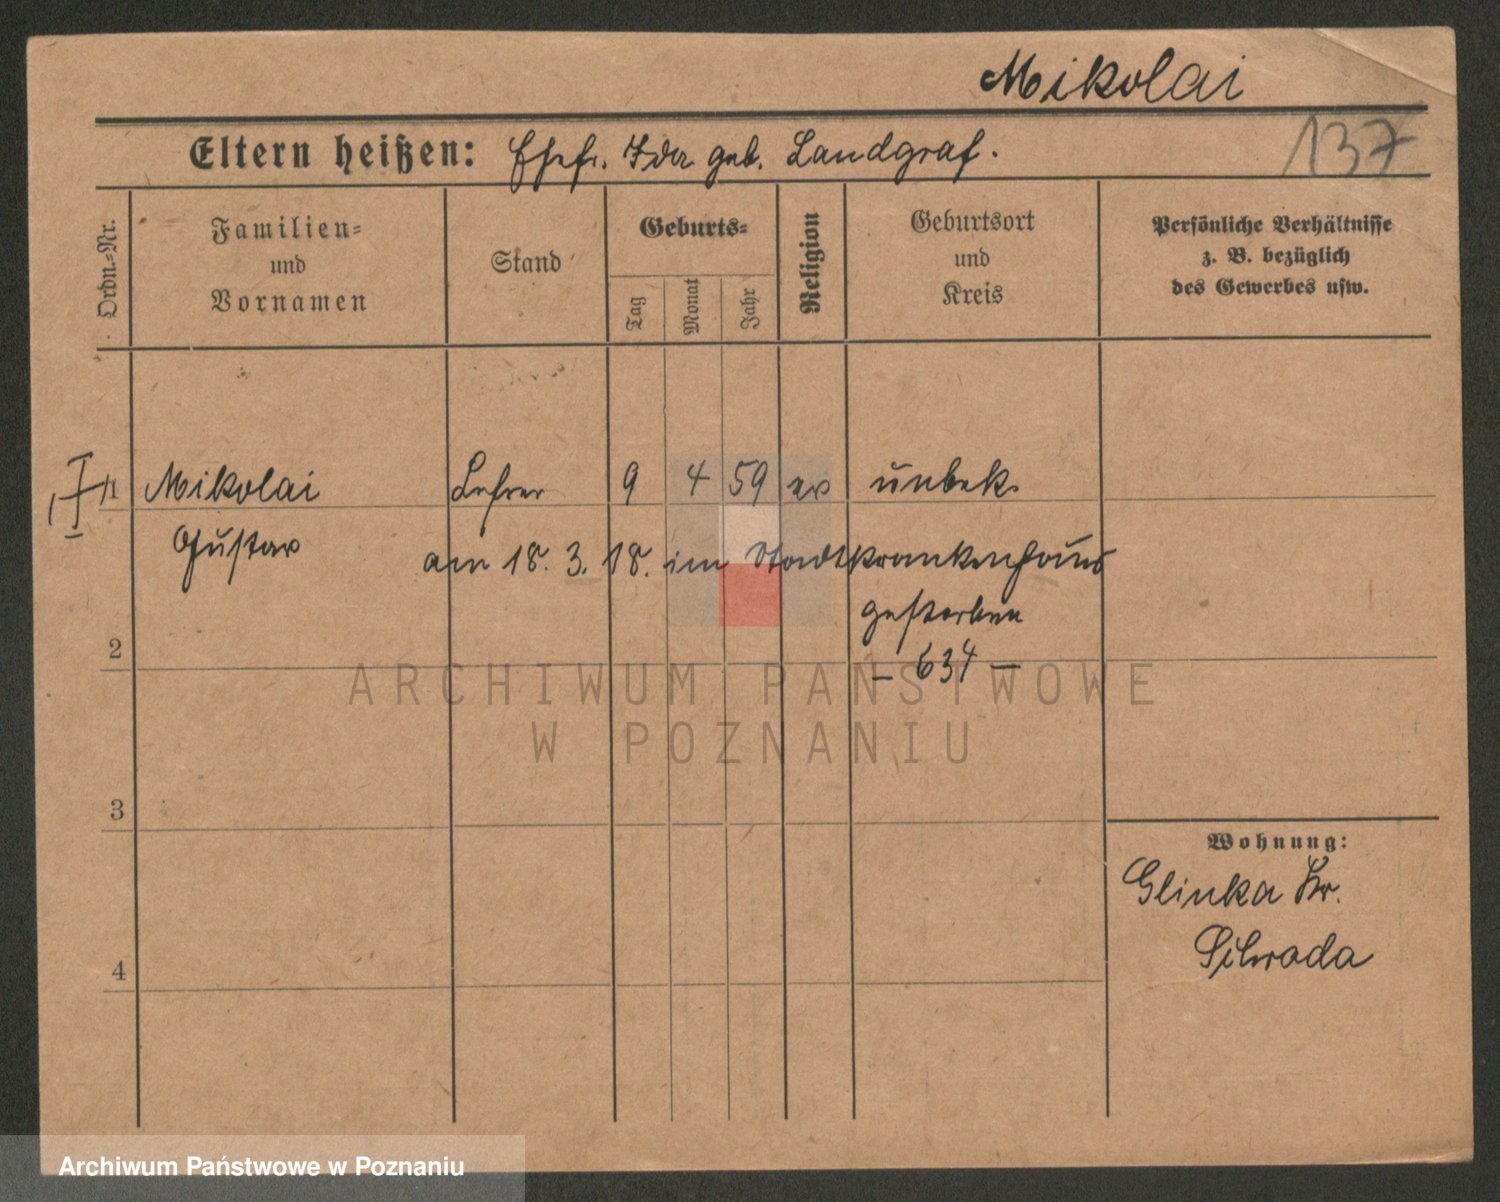 Mikolai
137
Eltern heißen: Ehefr. Ida geb. Landgraf.
Ordn.=Nr.
Familien=
und
Vornamen
Stand
Geburts=
Tag
Monat
Jahr
Religion
Geburtsort
und
Kreis
Persönliche Verhältnisse
z. B. bezüglich
des Gewerbes usw.
1 Mikolai Lehrer 9 4 59 ev unbek.
Gustav
am 18. 3. 18. im Stadtkrankenhaus
gestorben
— 634 —
2
3
4
Wohnung:
Glinka Kr.
Schroda
ARCHIWUM PAŃSTWOWE
W POZNANIU
Archiwum Państwowe w Poznaniu